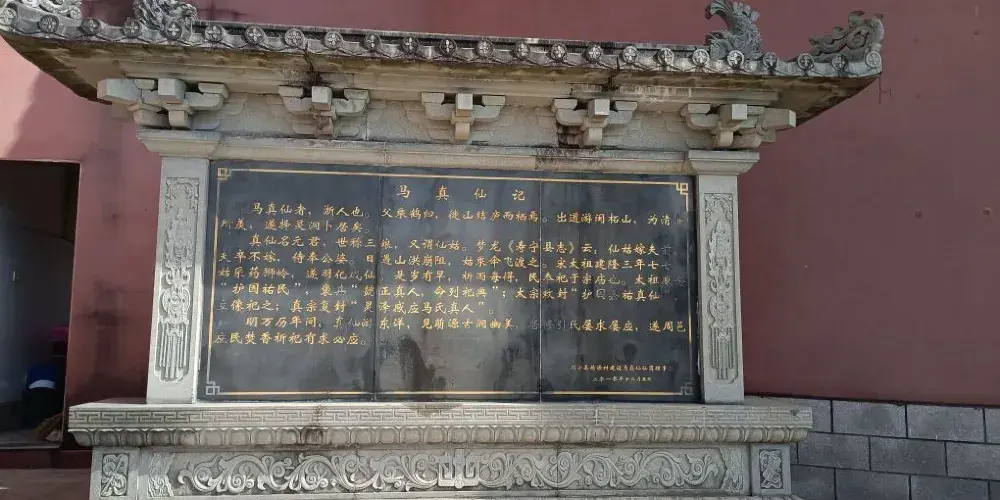 马真仙记
马真仙者，浙人也。父乘鹤归，徙山结庐而栖焉。出道游闽柘山，为清
所羡，遂择是涧卜居矣。
真仙名元君，世称三娘，又谓仙姑。梦龙《寿宁县志》云，仙姑嫁夫
夫卒不嫁，侍奉公婆。日遇山洪崩阻，姑乘伞飞渡之。宋太祖建隆三年七
姑采药狮岭，遂羽化成仙。是岁有旱，祈而每得，民奉祀于崇庙也。太祖
“护国祐民”，真人，命列祀典”；太宗敕封“护国 祐真仙
立像祀之；真宗复封“灵泽感应马氏真人”。
明万历年间，真仙 东洋，见萌源古涧幽美，引氏屡求屡应，遂周邑
庶民焚香祈祀有求必应。